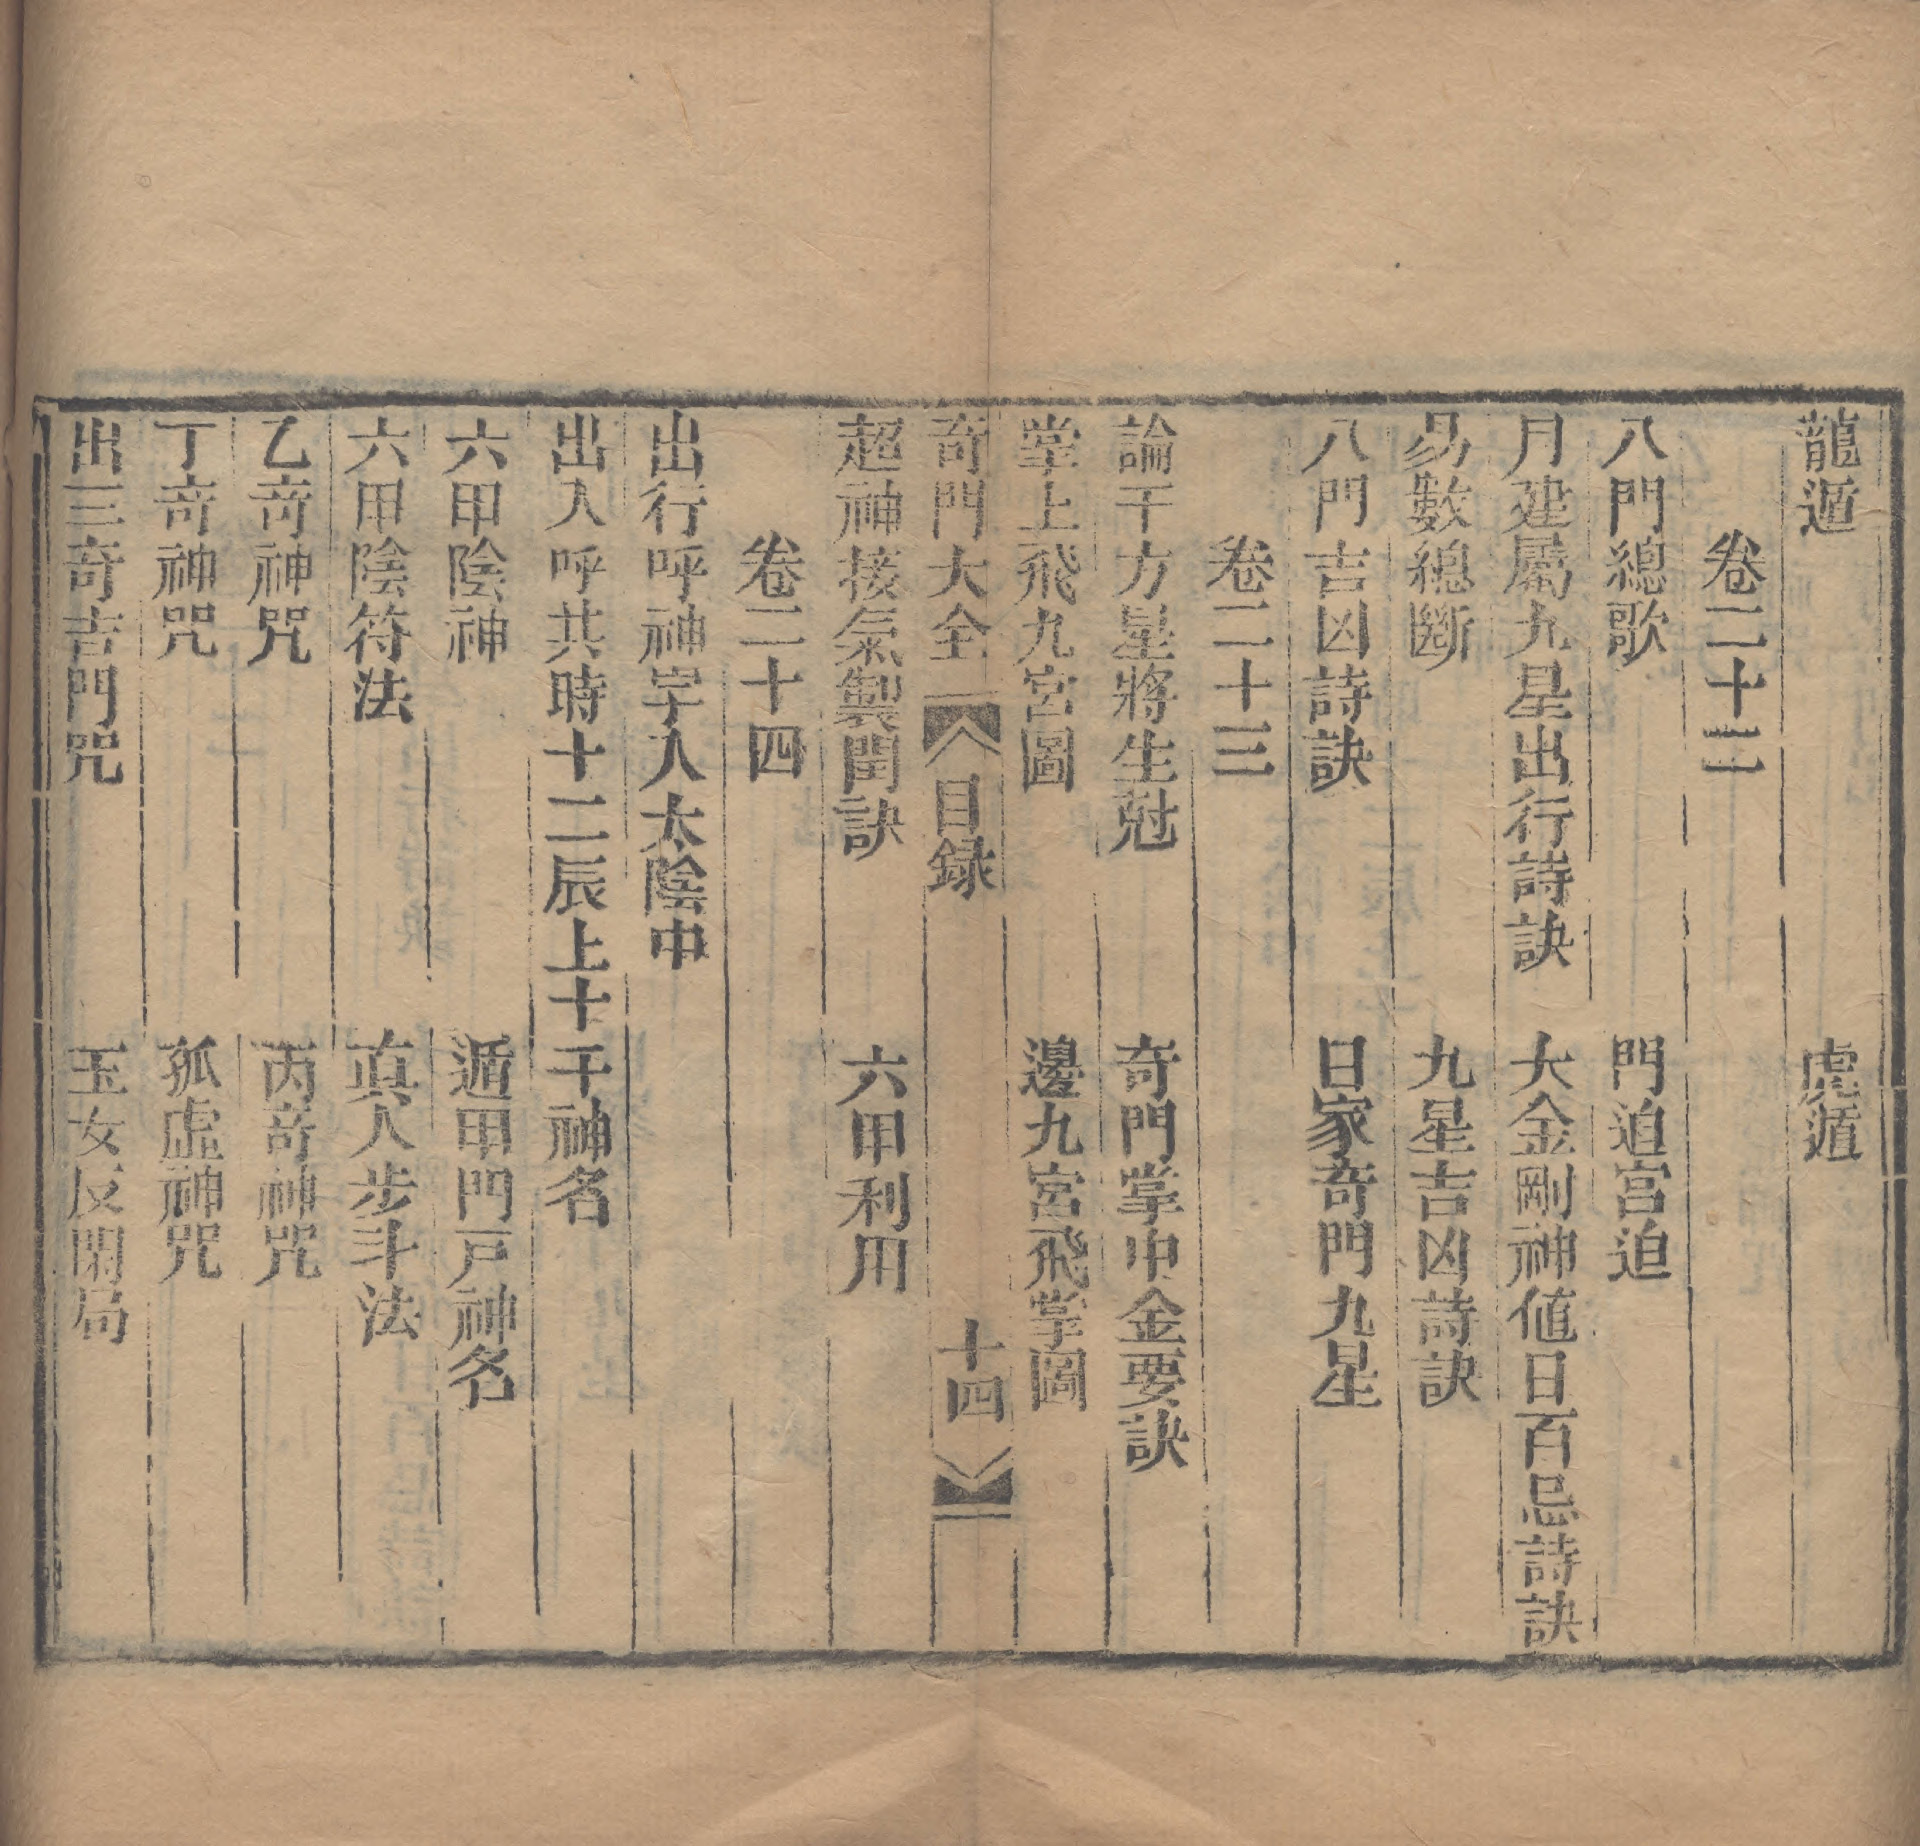 龍遁　虎遁
卷二十二
八門總歌　門迫宮迫
月建屬九星出行詩訣　大金剛神値日百忌詩訣
易數總斷　九星吉凶詩訣
八門吉凶詩訣　日家奇門九星
卷二十三
論干方星將生尅　奇門掌中金要訣
掌上飛九宮圖　邊九宮飛掌圖
奇門大全　目錄　十四
超神接氣製閏訣　六甲利用
卷二十四
出行呼神字入太陰中
出入呼共時十二辰上十干神名
六甲陰神　遁甲門戸神名
六甲陰符法　眞人步斗法
乙奇神咒　丙奇神咒
丁奇神咒　孤虛神咒
出三奇吉門咒　玉女反閉局